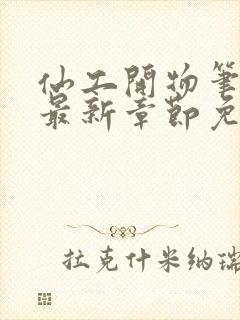 仙工開物筆
最新章節免
拉克什米纳瑞